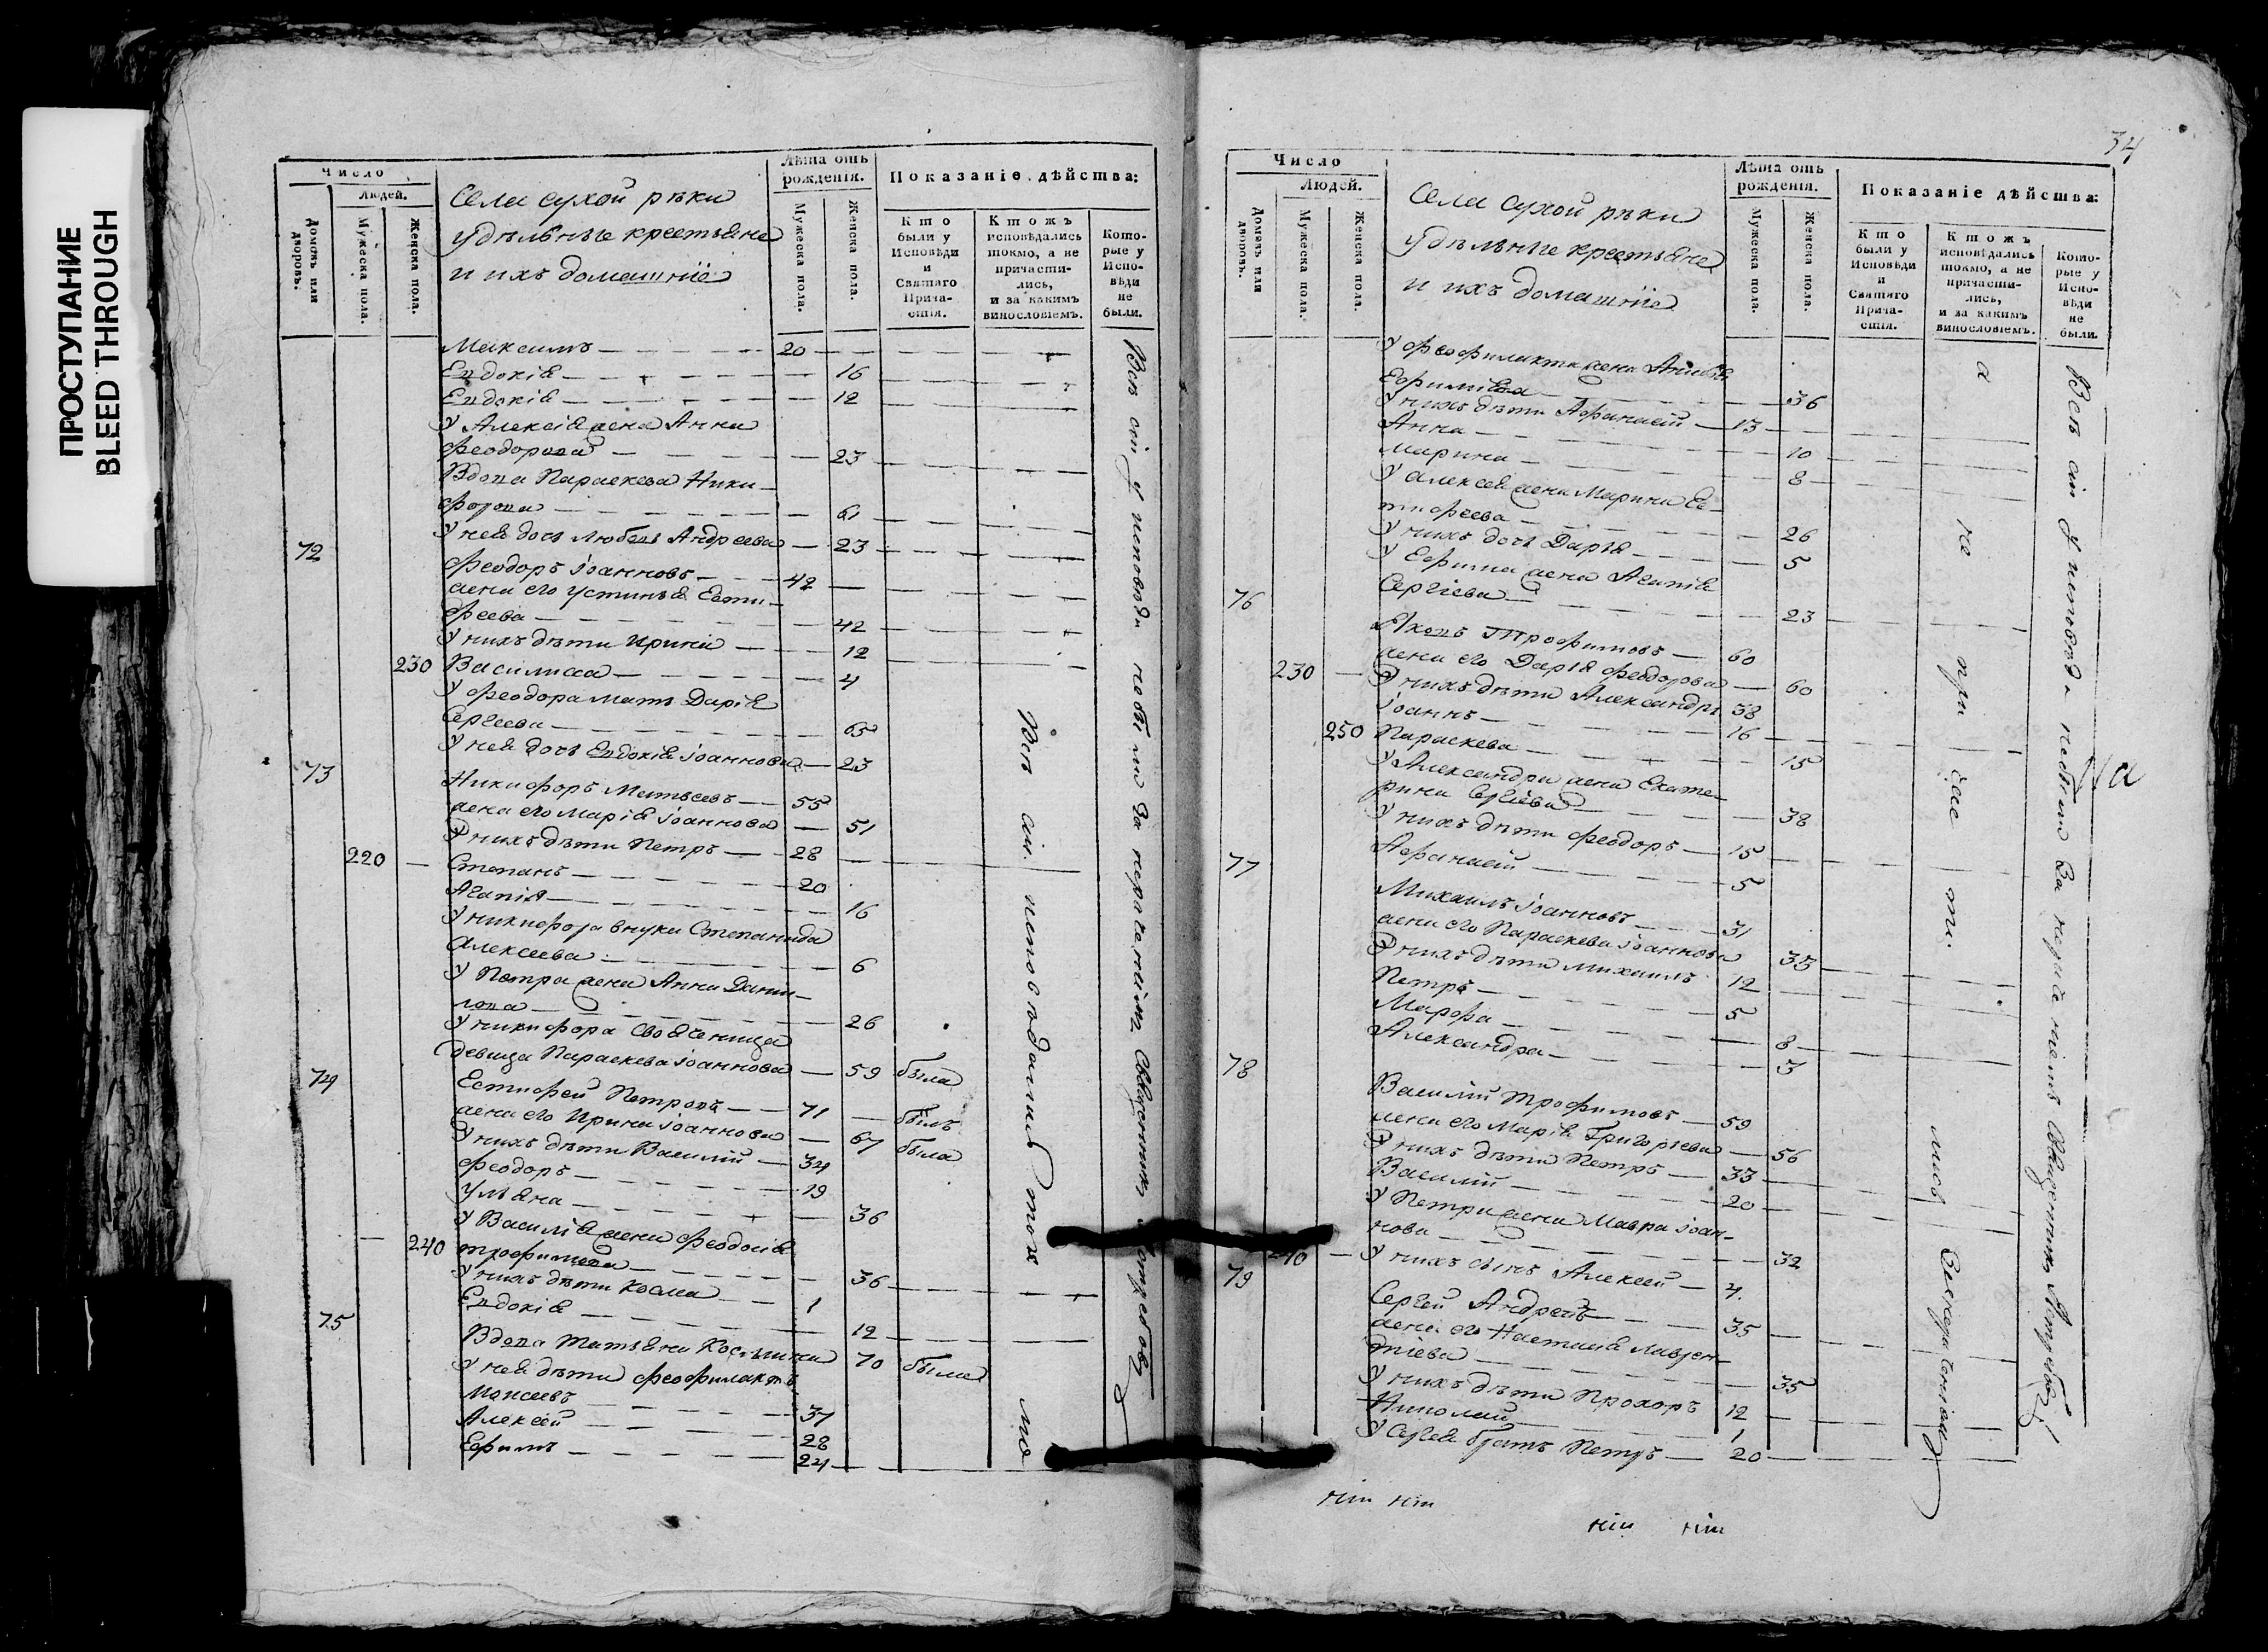 ПРОСТУПАНИЕ
BLEED THROUGH
Число
Людей.
Домовъ или дворовъ.
Мужеска пола.
Женска пола.
Села сухой рѣки
удѣльные крестьяне
и ихъ домашніе
Лѣта отъ рожденія.
Мужеска пола.
Женска пола.
Показаніе дѣйства:
Кто были у Исповѣди и Святаго Прича-стія.
Ктожъ исповѣдались токмо, а не причасти-лись, и за какимъ винословіемъ.
Кото-рые у Испо-вѣди не были.
Максимъ 20
Евдокія 16
Евдокія 12
У Алексія жена Анна
Феодорова 23
Вдова Параскева Ники-
форова 61
У нея дочь Любовь Андреева 23
72
Феодоръ Іоанновъ 42
жена его Устинья Евсти-
феева 42
У нихъ дѣти Ирина 12
230 Василиса 4
У Феодора мать Дарія
Сергеева 65
У нея дочь Евдокія Іоаннова 23
73
Никифоръ Матвеевъ 55
жена его Марія Іоаннова 51
У нихъ дѣти Петръ 28
220 Степанъ 20
Агапія 16
У Никифора внука Степанида
Алексеева 6
У Петра жена Анна Дани-
лова 26
У Никифора свояченица
девица Параскева Іоаннова 59 была
74
Естифей Петровъ 71 былъ
жена его Ирина Іоаннова 67 была
У нихъ дѣти Василій 34
Феодоръ 19
Ульяна 36
У Василія жена Феодосія
240 Трофимова 36
У нихъ дѣти Косма 1
Евдокія 12
75
Вдова Татьяна Космина 70 была
У нея дѣти Феофилактъ
Моисеевъ 37
Алексѣй 28
Ефимъ 24
Всѣ сіи исповѣдались токмо
Всѣ сіи у исповѣди не были за нерачениемъ Священникъ
34
Число
Людей.
Домовъ или дворовъ.
Мужеска пола.
Женска пола.
Села сухой рѣки
удѣльные крестьяне
и ихъ домашніе
Лѣта отъ рожденія.
Мужеска пола.
Женска пола.
Показаніе дѣйства:
Кто были у Исповѣди и Святаго Прича-стія.
Ктожъ исповѣдались токмо, а не причасти-лись, и за какимъ винословіемъ.
Кото-рые у Испо-вѣди не были.
У Феофилакта жена
Ефимиева 36
У нихъ дѣти Афанасій 13
Анна 10
Марина 8
У Алексея жена Марина Ев-
тифеева 26
У нихъ дочь Дарья 5
У Ефима жена Агапія
Сергіева 23
76
Яковъ Трофимовъ 60
230 жена его Дарья Феодорова 60
У нихъ дѣти Александръ 38
Іоаннъ 16
250 Параскева 15
У Александра жена Екате-
рина Сергіева 38
У нихъ дѣти Феодоръ 15
Афанасій 5
77
Михаилъ Іоанновъ 31
жена его Параскева Іоаннова 35
У нихъ дѣти Михаилъ 12
Петръ 5
Марфа 8
Александра 3
78
Василій Трофимовъ 59
жена его Марія Григорьева 56
У нихъ дѣти Петръ 33
Василій 20
У Петра жена Мавра Іоан-
нова 32
240 У нихъ сынъ Алексей 4
79
Сергей Андреевъ 35
жена его Настасія Лаврен-
тіева 35
У нихъ дѣти Прохоръ 12
Николай 1
У Сергея братъ Петръ 20
а не причастились За нерачениемъ
Всѣ сіи у исповѣди не были за нерачениемъ Священникъ